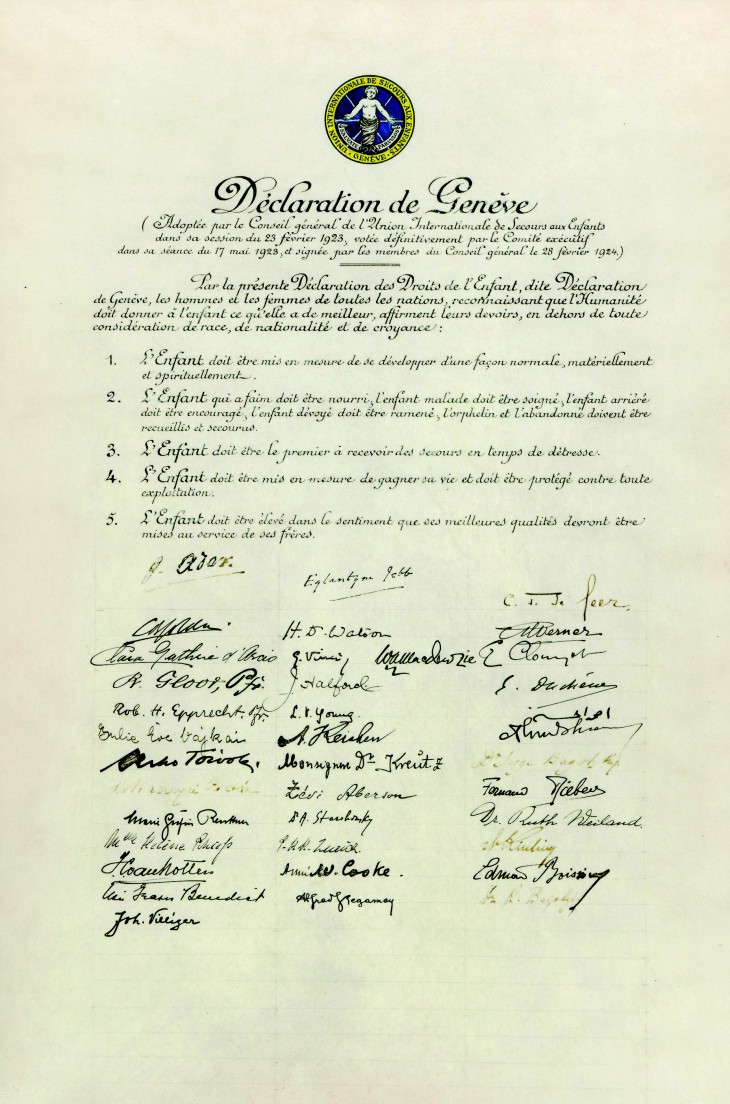 UNION INTERNATIONALE DE SECOURS AUX ENFANTS
· GENÈVE ·
Déclaration de Genève
(Adoptée par le Conseil général de l'Union Internationale de Secours aux Enfants
dans sa session du 23 février 1923, votée définitivement par le Comité exécutif
dans sa séance du 17 mai 1923, et signée par les membres du Conseil général le 28 février 1924.)
Par la présente Déclaration des Droits de l'Enfant, dite Déclaration
de Genève, les hommes et les femmes de toutes les nations, reconnaissant que l'Humanité
doit donner à l'enfant ce qu'elle a de meilleur, affirment leurs devoirs, en dehors de toute
considération de race, de nationalité et de croyance :
1. L'Enfant doit être mis en mesure de se développer d'une façon normale, matériellement
et spirituellement.
2. L'Enfant qui a faim doit être nourri; l'enfant malade doit être soigné; l'enfant arriéré
doit être encouragé; l'enfant dévoyé doit être ramené; l'orphelin et l'abandonné doivent être
recueillis et secourus.
3. L'Enfant doit être le premier à recevoir des secours en temps de détresse.
4. L'Enfant doit être mis en mesure de gagner sa vie et doit être protégé contre toute
exploitation.
5. L'Enfant doit être élevé dans le sentiment que ses meilleures qualités devront être
mises au service de ses frères.
G. Ador.
Eglantyne Jebb
H. D. Watson
Werner
Clara Guthrie d'Arcis
E. Clouzot
R. Gloor, Pfr.
J Halford
Rob. H. Epprecht, Pfr.
L. V. Young
A. Keicher
Monsignore Dr. Kreutz
Zévi Aberson
Fernand
Dr. Ruth Weiland.
Cooke.
Benedict
Alfred Gregamey
Joh. Villiger